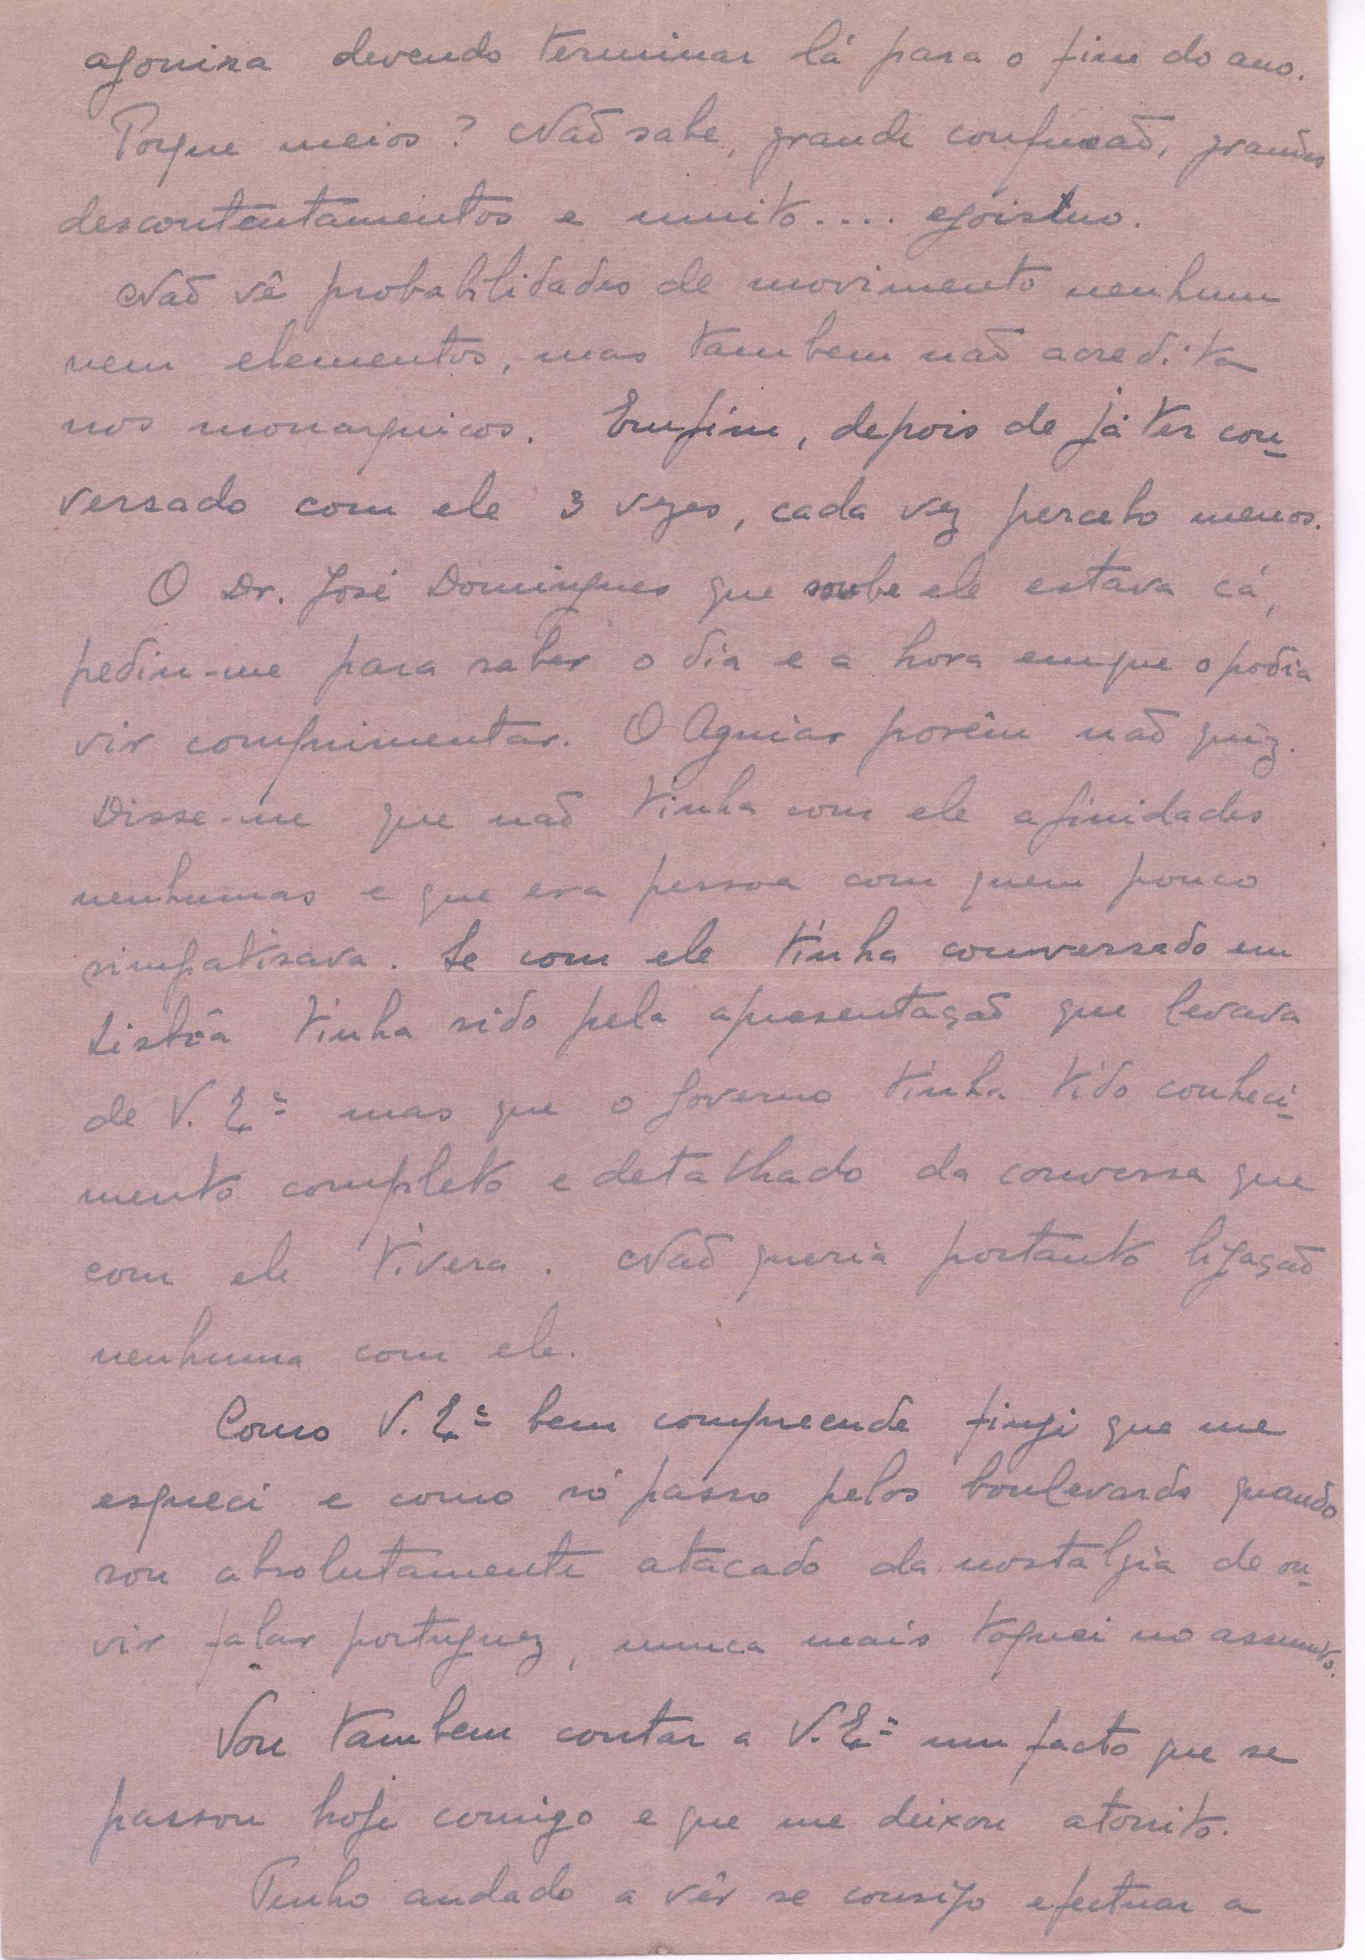 agonisa devendo terminar lá para o fim do ano.
Porque meios? Não sabe, grande confusão, grandes
descontentamentos e muito.... egoismo.
Não vê probabilidades de movimento nenhum
nem elementos, mas tambem não acredita
nos monarquicos. Emfim, depois de já ter con-
versado com ele 3 vezes, cada vez percebo menos.
O Dr. José Domingues que soube ele estava cá,
pediu-me para saber o dia e a hora em que o podia
vir comprimentar. O Aguiar porêm não quiz.
Disse-me que não tinha com ele afinidades
nenhumas e que era pessoa com quem pouco
simpatisava. Se com ele tinha conversado em
Lisbôa tinha sido pela apresentação que levava
de V. Exª mas que o governo tinha tido conheci-
mento completo e detalhado da conversa que
com ele tivera. Não queria portanto ligação
nenhuma com ele.
Como V. Exª bem compreende fingi que me
esqueci e como só passo pelos boulevards quando
sou absolutamente atacado da nostalgia de ou-
vir falar portuguez, nunca mais toquei no assumto.
Vou tambem contar a V. Exª um facto que se
passou hoje comigo e que me deixou atonito.
Tenho andado a vêr se consigo efectuar a